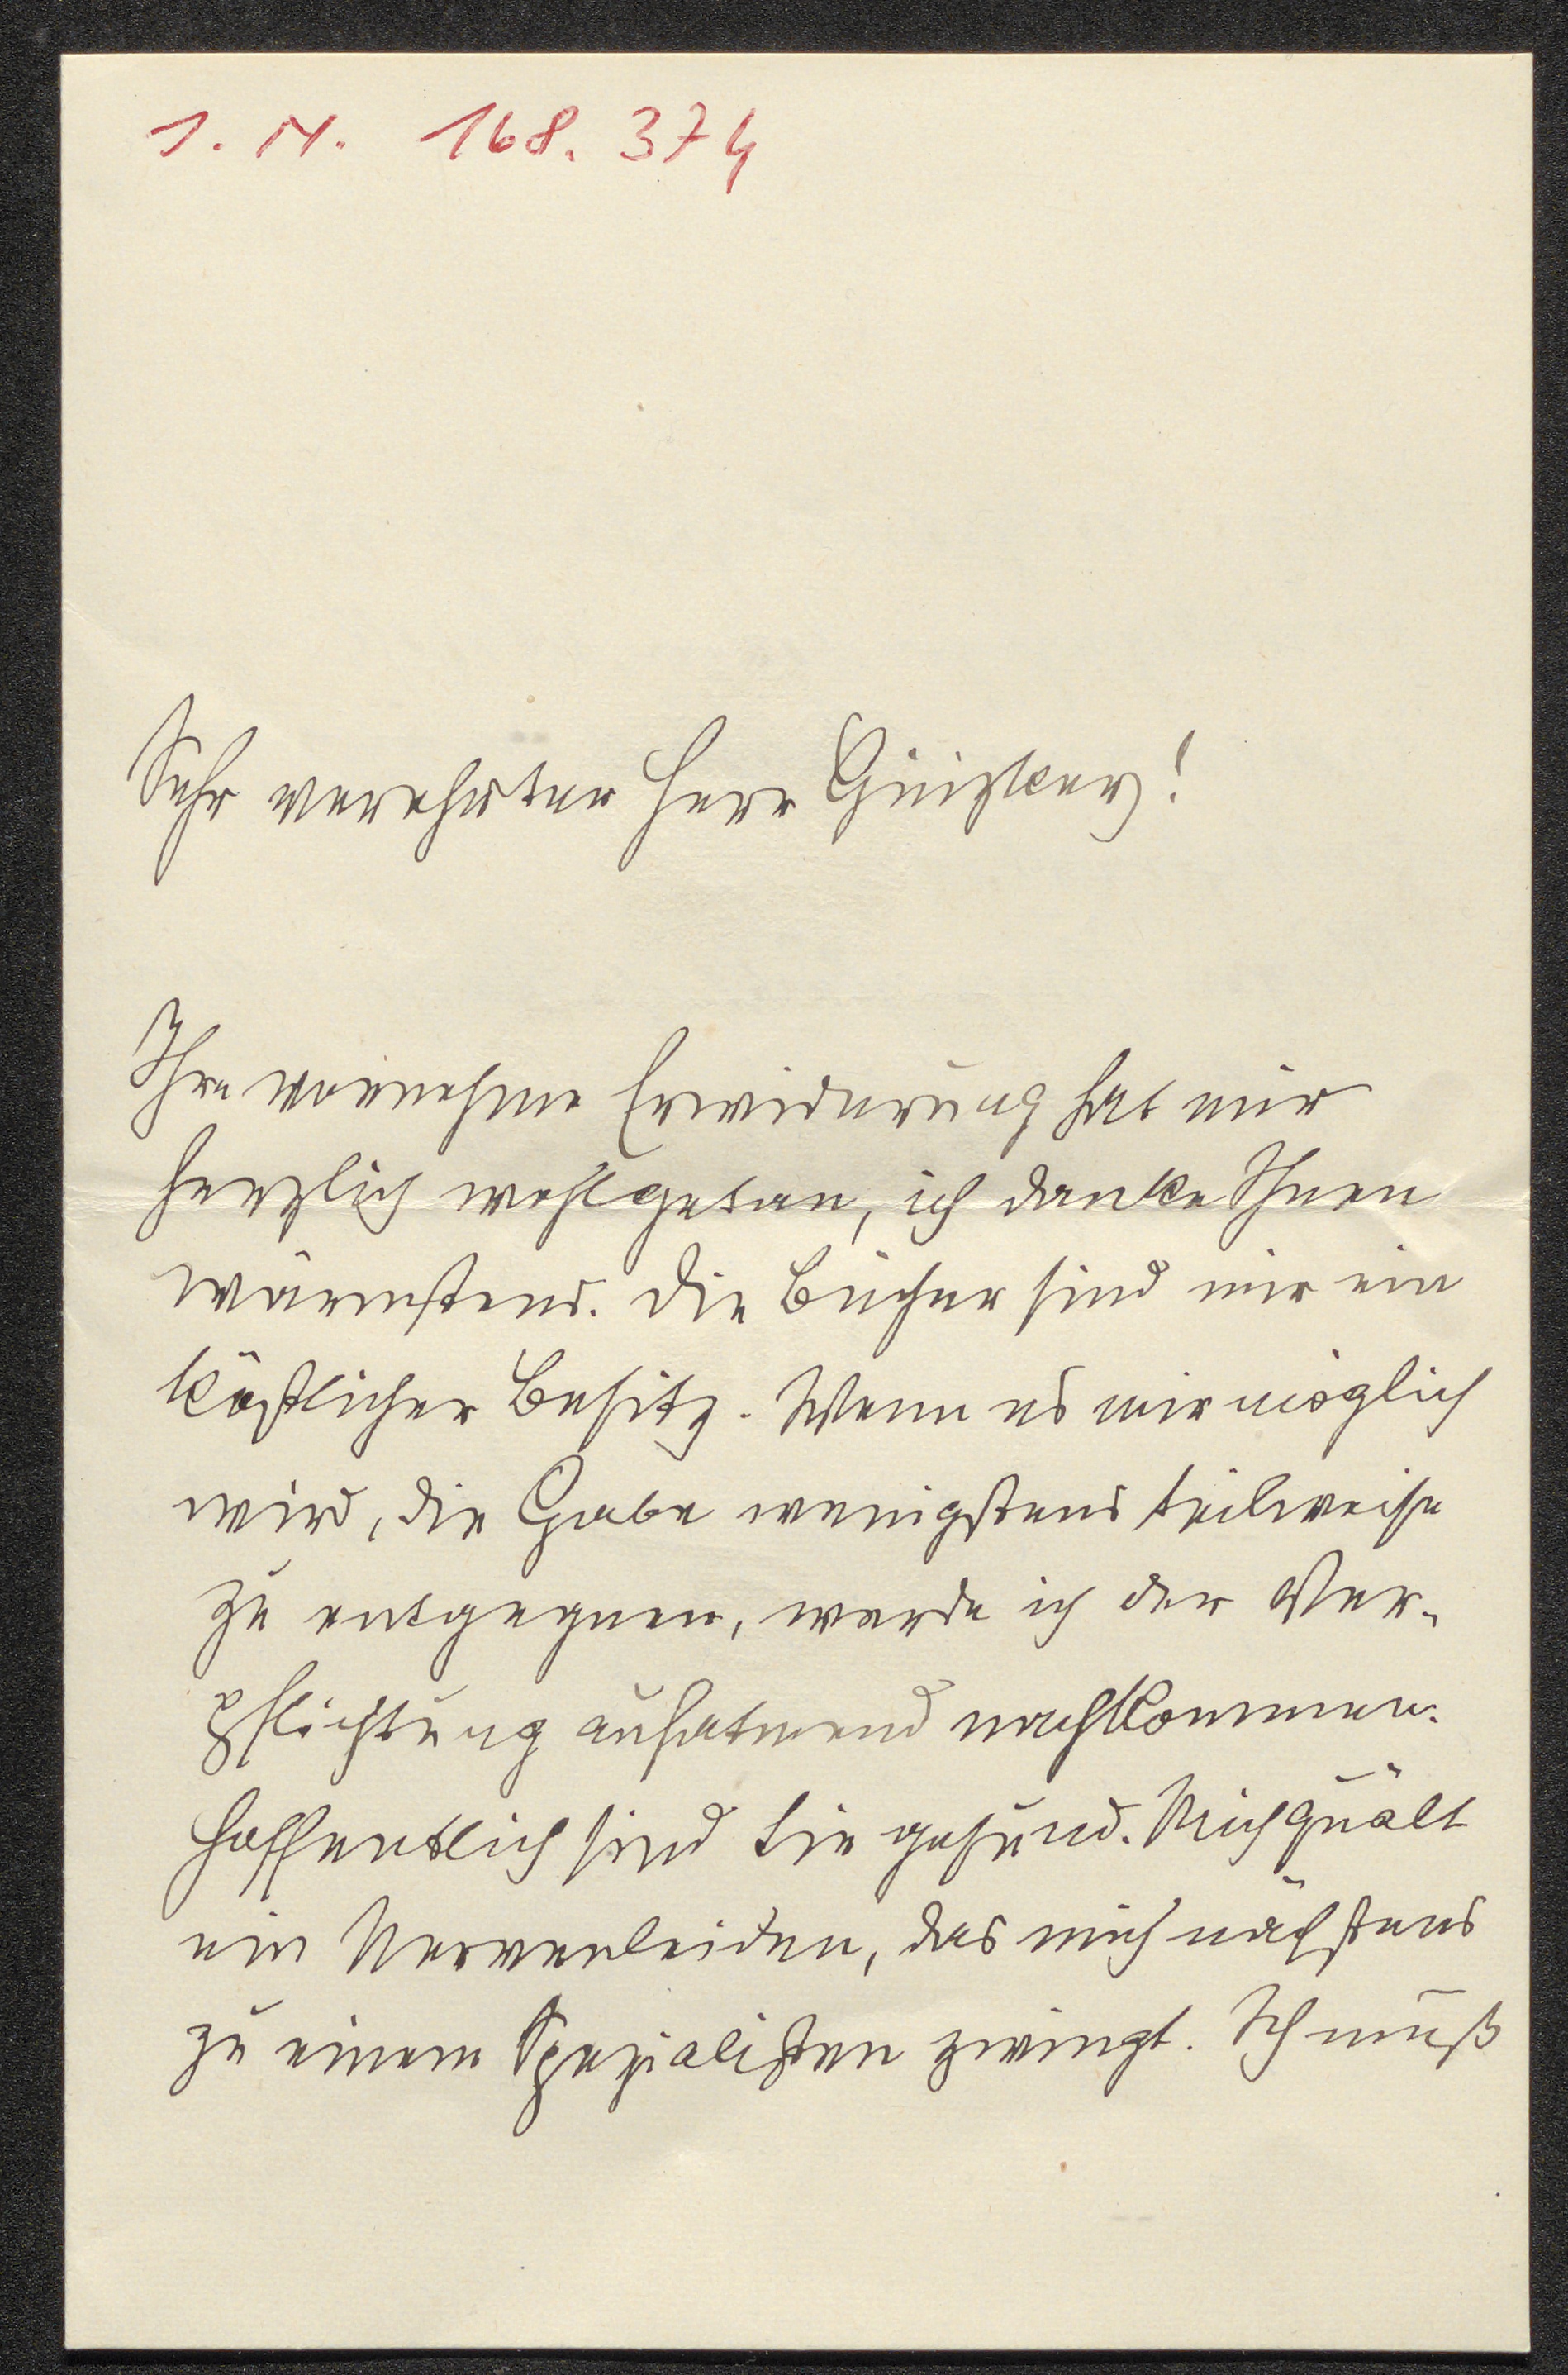 J. N. 168.374
Sehr verehrter Herr Ginzkey!
Ihre vornehme Erwiderung hat mir
herzlich wohlgetan, ich danke Ihnen
wärmstens. Die Bücher sind mir ein
köstlicher Besitz. Wenn es mir möglich
wird, die Gabe wenigstens teilweise
zu entgegnen, werde ich der Ver-
pflichtung aufatmend nachkommen.
Hoffentlich sind Sie gesund. Mich quält
ein Nervenleiden, das mich nächstens
zu einem Spezialisten zwingt. Ich muß